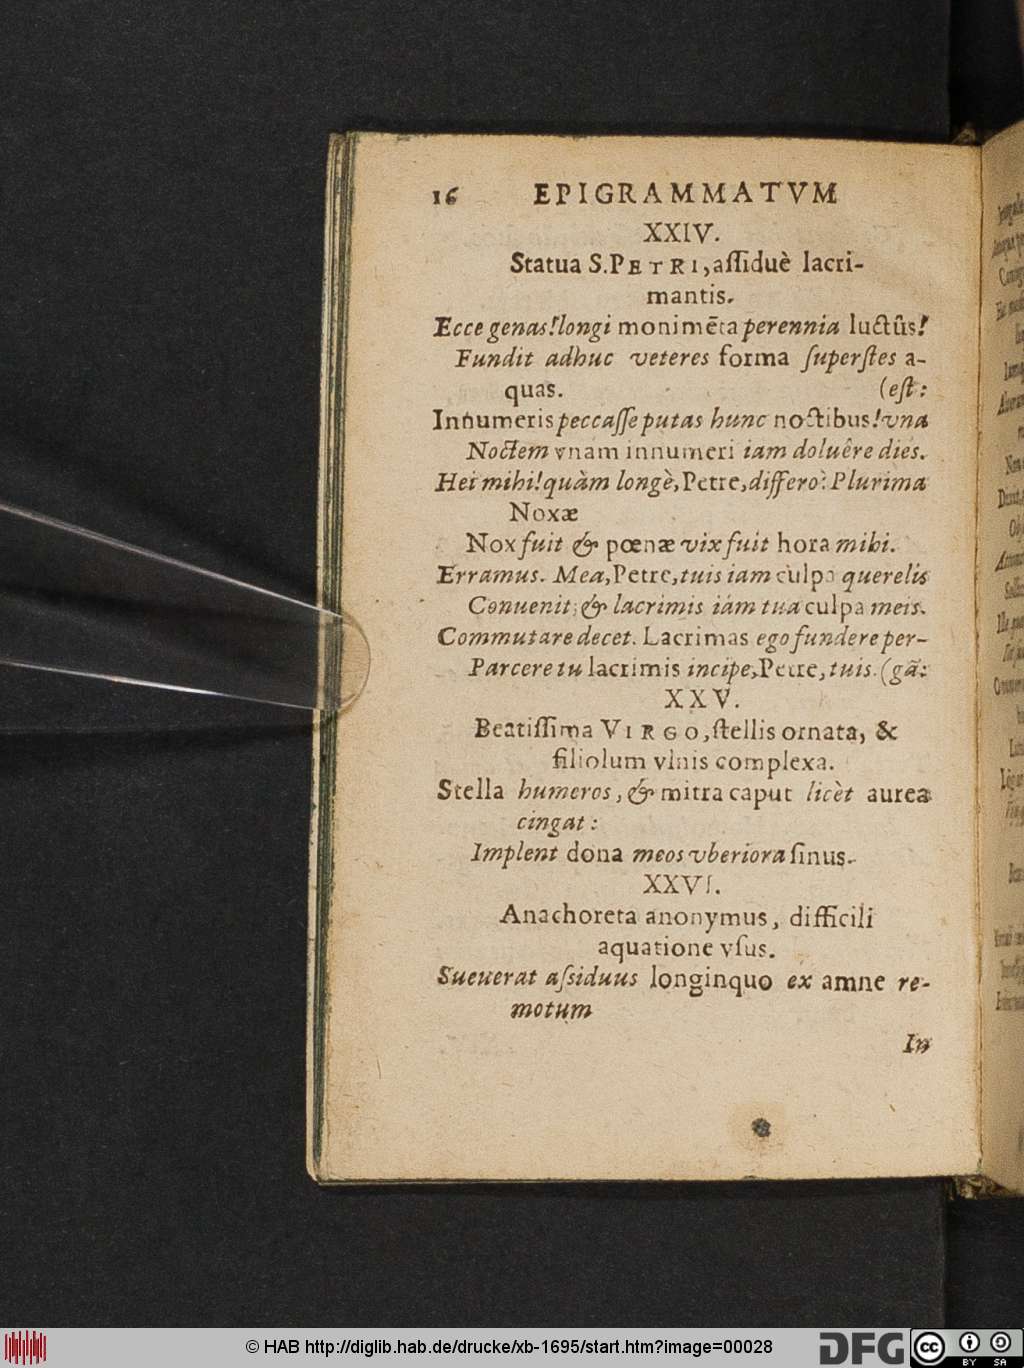 16 EPIGRAMMATVM
XXIV.
Statua S. PETRI, aſſiduè lacri-
mantis.
Ecce genas! longi monimēta perennia luctûs!
Fundit adhuc veteres forma ſuperſtes a-
quas. (eſt:
Innumeris peccaſſe putas hunc noctibus! vna
Noctem vnam innumeri iam doluêre dies.
Hei mihi! quàm longè, Petre, differo! Plurima
Noxæ
Nox fuit & pœnæ vix fuit hora mihi.
Erramus. Mea, Petre, tuis iam culpa querelis
Conuenit; & lacrimis iam tua culpa meis.
Commutare decet. Lacrimas ego fundere per-
Parcere tu lacrimis incipe, Petre, tuis. (gã:
XXV.
Beatiſſima VIRGO, ſtellis ornata, &
filiolum vlnis complexa.
Stella humeros, & mitra caput licèt aurea
cingat:
Implent dona meos vberiora ſinus.
XXVI.
Anachoreta anonymus, difficili
aquatione vſus.
Sueuerat aſsiduus longinquo ex amne re-
motum
In
© HAB http://diglib.hab.de/drucke/xb-1695/start.htm?image=00028
DFG
cc BY SA